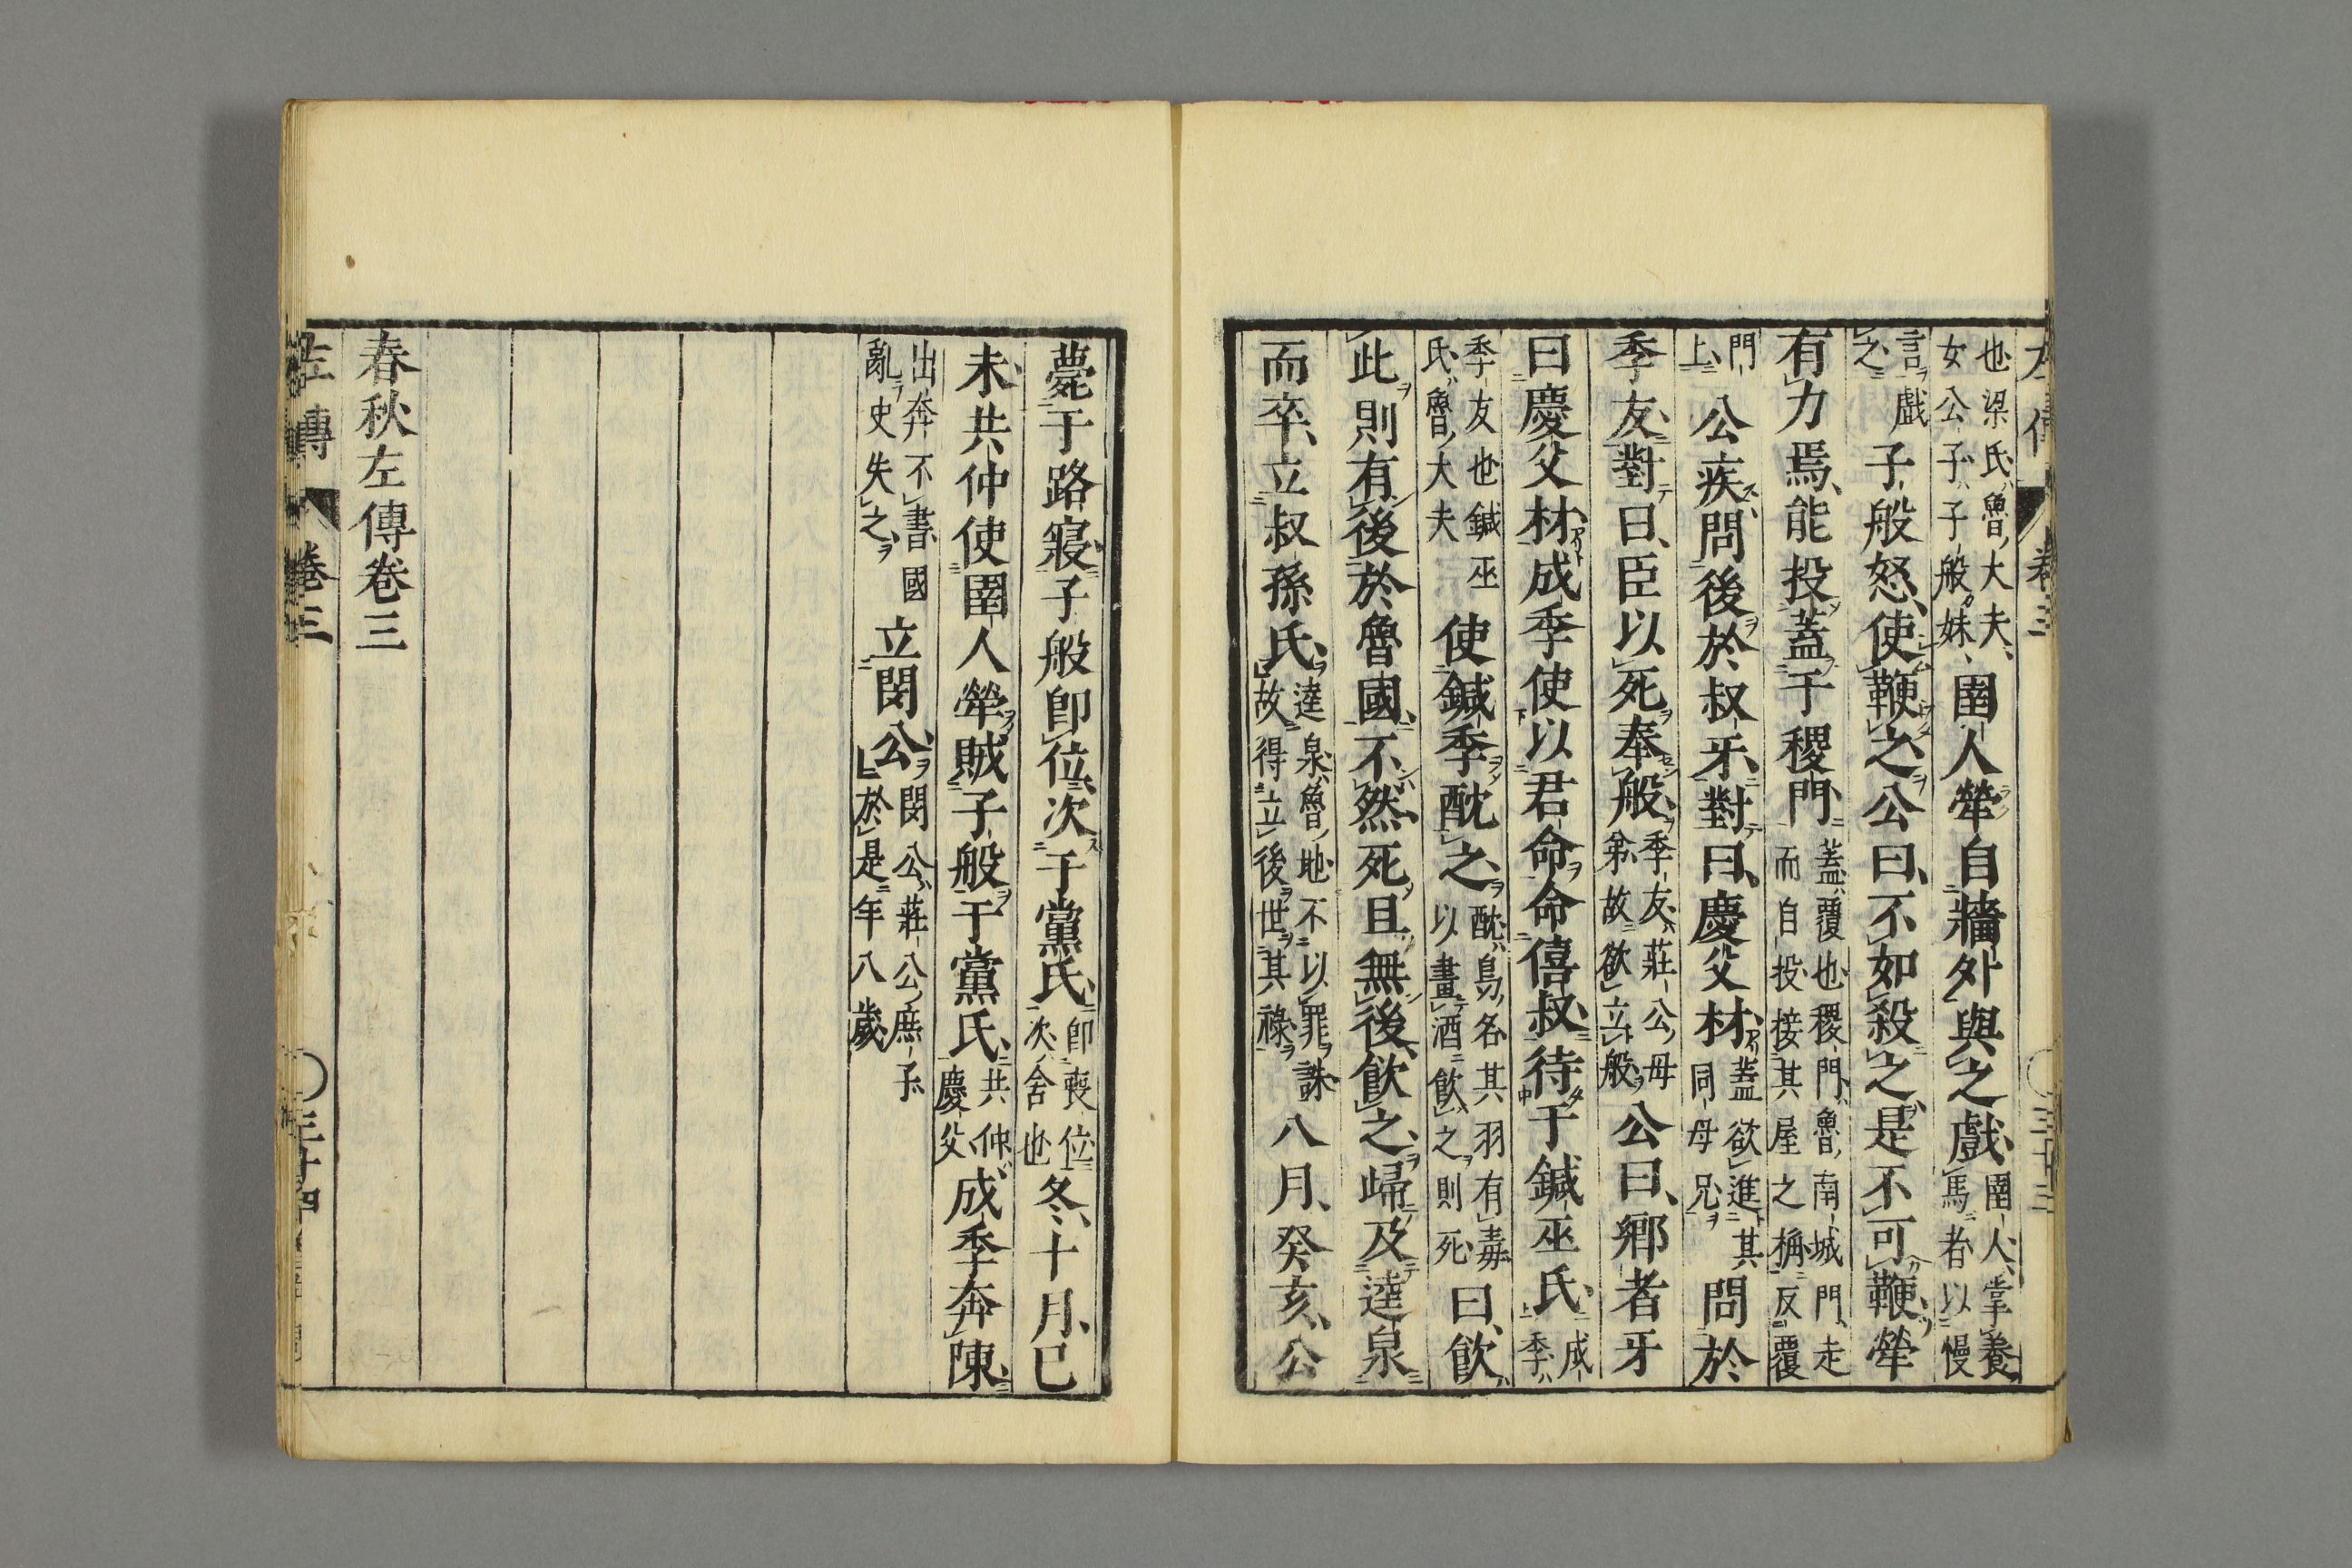 也梁氏魯大夫女公子子般妹圉人犖自牆外與之戲圉人掌養馬者以慢
言戲之子般怒使鞭之公曰不如殺之是不可鞭犖
有力焉能投蓋于稷門蓋覆也稷門魯南城門走而自投接其屋之桷反覆
門上公疾問後於叔牙對曰慶父材蓋欲進其同母兄問於
季友對曰臣以死奉般季友莊公母弟故欲立般公曰鄉者牙
曰慶父材成季使以君命命僖叔待于鍼巫氏成季
季友也鍼巫氏魯大夫使鍼季酖之酖鳥名其羽有毒以畫酒飲之則死曰飲
此則有後於魯國不然死且無後飲之歸及逵泉
而卒立叔孫氏逵泉魯地不以罪誅故得立後世其祿八月癸亥公
薨于路寢子般卽位次于黨氏卽喪位次舍也冬十月己
未共仲使圉人犖賊子般于黨氏共仲慶父成季奔陳
出奔不書國亂史失之立閔公閔公莊公庶子於是年八歲
春秋左傳卷三
左傳 卷三 三十四